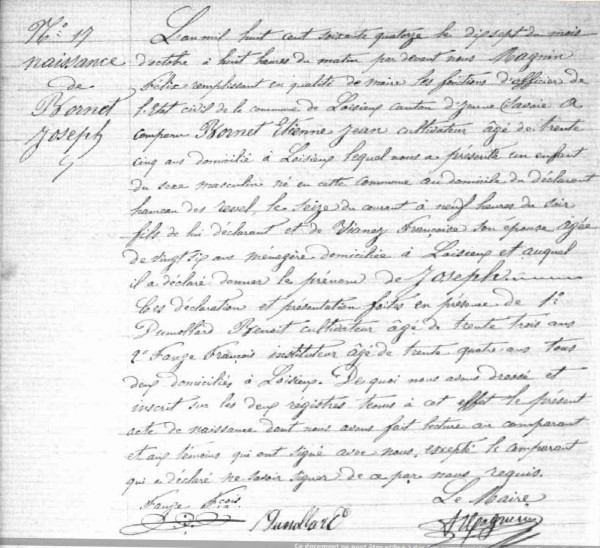 N.o 17
naissance
de
Bornet
Joseph
L'an mil huit cent soixante quatorze le dix sept du mois
d'octobre à huit heures du matin par devant nous Magnin
Félix remplissant en qualité de maire les fontions d'officier de
l'Etat civil de la commune de Loisieux canton d'yenne (Savoie a
comparu Bornet Etienne Jean cultivateur âgé de trente
cinq ans domicilié à Loisieux lequel nous a présenté un enfant
du sexe masculin né en cette commune au domicile du déclarant
hameau des revel, le seize du courant à neuf heures du soir
fils de lui déclarant et de Vianey Françoise son épouse agée
de vingt six ans ménagère domiciliée à Loisieux et auquel
il a déclaré donner le prénom de Joseph
Ces déclaration et présentation faites en présence de 1.o
Dumollard Benoit cultivateur âgé de trente trois ans
2.o Fauge François instituteur âgé de trente quatre ans tous
deux domiciliés à Loisieux. De quoi nous avons dressé et
inscrit sur les deux régistres tenus à cet effet le présent
acte de naissance dont nous avons fait lecture au comparant
et aux témoins qui ont signé avec nous, excepté le comparant
qui a déclaré ne savoir signer de ce par nous requis.
Le Maire
Fauge F.çois Dumollard
Ce document ne peut être utilisé à des